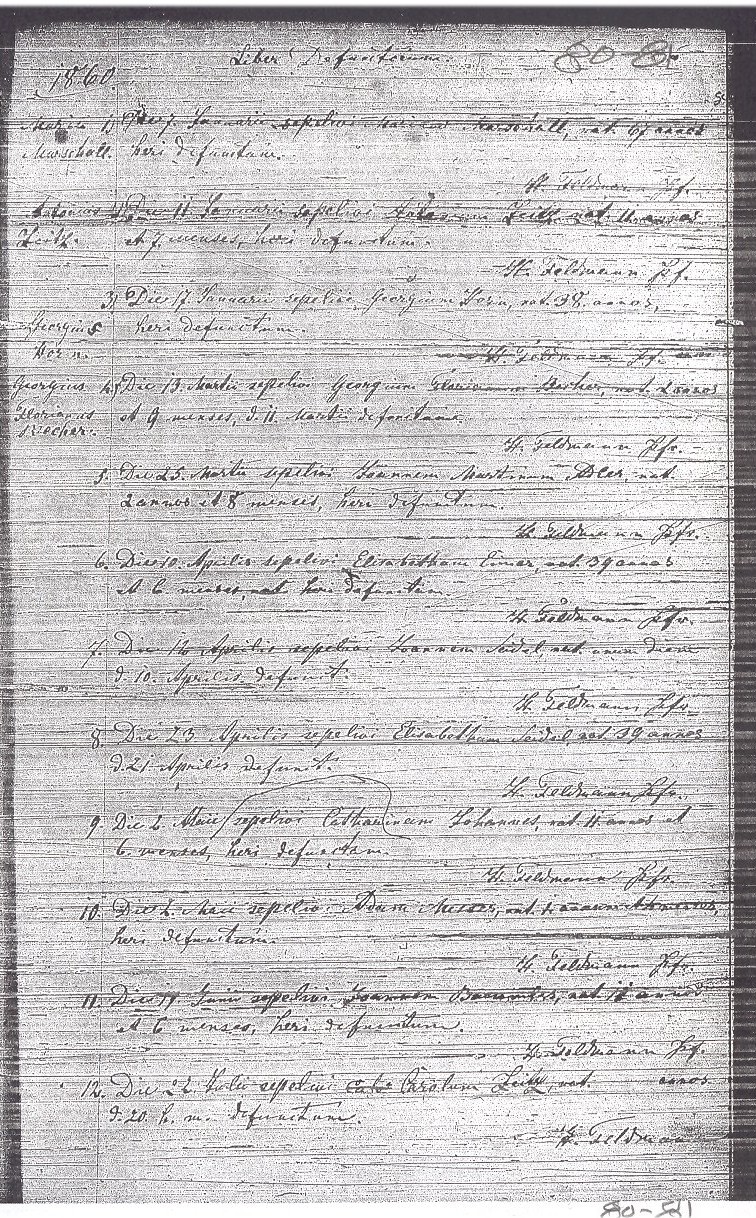 Liber Defunctorum.
80-81
1860.
Maria Marschall.
1) Die 7. Januarii sepelivi Mariam Marschall, nat. 67 annos
heri defunctam.
H. Feldmann Pfr.
Antonius Zeitz.
2) Die 11. Januarii sepelivi Antonium Zeitz, nat. 11 annos
et 7 menses, heri defunctum.
H. Feldmann Pfr.
Georgius Horn.
3) Die 17. Januarii sepelivi Georgium Horn, nat. 38 annos,
heri defunctum.
H. Feldmann Pfr.
Georgius Florianus Becher.
4) Die 13. Martii sepelivi Georgium Florianum Becher, nat. 2 annos
et 9 menses, d. 11. Martii defunctum.
H. Feldmann Pfr.
5. Die 25. Martii sepelivi Joannem Martinum Adler, nat.
2 annos et 8 menses, heri defunctum.
H. Feldmann Pfr.
6. Die 10. Aprilis sepelivi Elisabetham nat. 39 annos
et 6 menses, nat heri defunctam.
H. Feldmann Pfr.
7. Die 12 Aprilis sepelivi Joannem Seidel, nat. unum diem
d. 10. Aprilis defunct.
H. Feldmann Pfr.
8. Die 23 Aprilis sepelivi Elisabetham Seidel, nat. 39 annos
d. 21 Aprilis defunct.
H. Feldmann Pfr.
9. Die 2. Maii sepelivi Catharinam Johannes, nat. 11 annos et
6 menses, heri defunctam.
H. Feldmann Pfr.
10. Die 2. Maii sepelivi Adam nat.
heri defunctum.
H. Feldmann Pfr.
11. Die 19. Junii sepelivi Joannem nat. annos
et 6 menses, heri defunctum.
H. Feldmann Pfr.
12. Die 22. Julii sepelivi Carolum Zeitz, nat. annos
d. 20. h. m. defunctum.
H. Feldmann
80-81